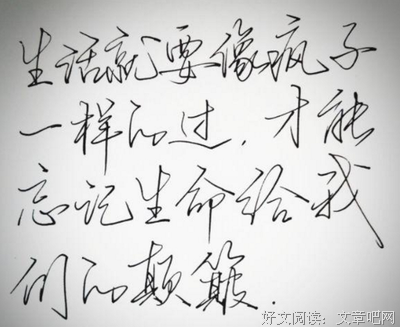 生活就要像疯子
一样的过,才能
忘记生命给我
们的颠簸.
好文阅读:文章吧网